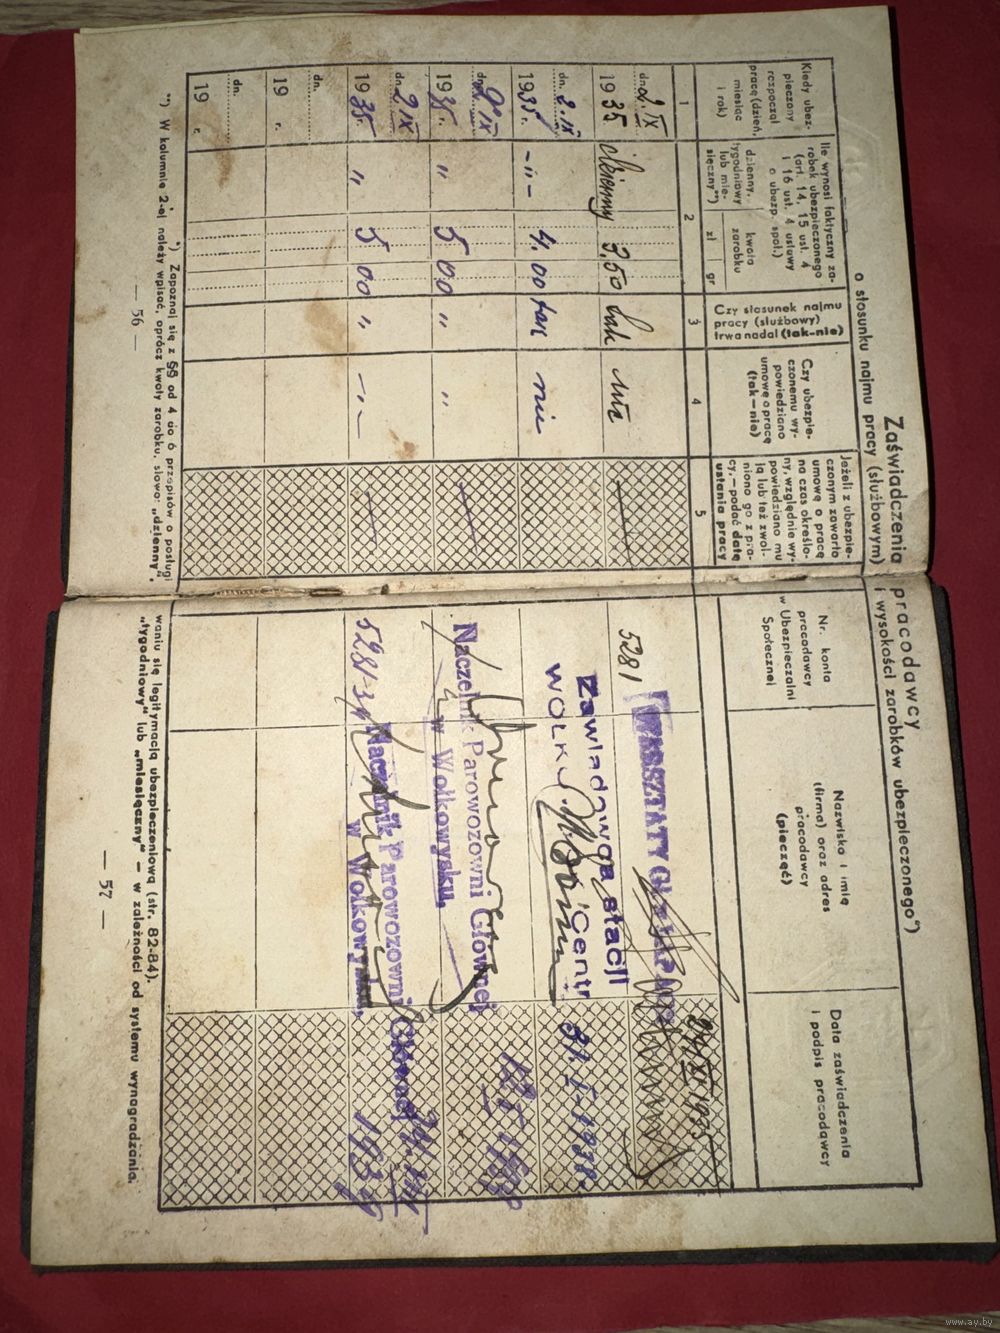 Zaświadczenia pracodawcy
o stosunku najmu pracy (służbowym) i wysokości zarobków ubezpieczonego*)
Kiedy ubez-
pieczony
rozpoczął
pracę (dzień,
miesiąc
i rok)
Ile wynosi faktyczny za-
robek ubezpieczonego
(art. 14, 15 ust. 4
i 16 ust. 4 ustawy
o ubezp. społ.)
dzienny,
tygodniowy
lub mie-
sięczny**)
kwota
zarobku
zł
gr
Czy stosunek najmu
pracy (służbowy)
trwa nadal (tak-nie)
Czy ubezpie-
czonemu wy-
powiedziano
umowę o pracę
(tak—nie)
Jeżeli z ubezpie-
czonym zawarto
umowę o pracę
na czas określo-
ny, względnie wy-
powiedziano mu
ją lub też zwol-
niono go z pra-
cy,—podać datę
ustania pracy
Nr. konta
pracodawcy
w Ubezpieczalni
Społecznej
Nazwisko i imię
(firma) oraz adres
pracodawcy
(pieczęć)
Data zaświadczenia
i podpis pracodawcy
1
2
3
4
5
dn. 2.IX
1935
dzienny
3,50
tak
nie
5281
WARSZTATY
XI 1935
dn. 2.IX
1935 r.
-"-
4.00
tak
nie
Zawiadowca stacji
WOŁK
Centr
dn. 2 IX
1935 r.
"
5 00
"
"
Naczelnik Parowozowni Głównej
w Wołkowysku.
dn. 2 IX
1935 r.
"
5 00
"
-"-
5281-
Naczelnik Parowozowni Głównej
w Wołkowysku.
dn.
19 r.
dn.
19 r.
*) Zapoznaj się z §§ od 4 do 6 przepisów o posługiwaniu się legitymacją ubezpieczeniową (str. 82-84).
**) W kolumnie 2-ej należy wpisać, oprócz kwoty zarobku, słowo: „dzienny“, „tygodniowy“ lub „miesięczny“ — w zależności od systemu wynagradzania.
— 56 —
— 57 —
www.ay.by